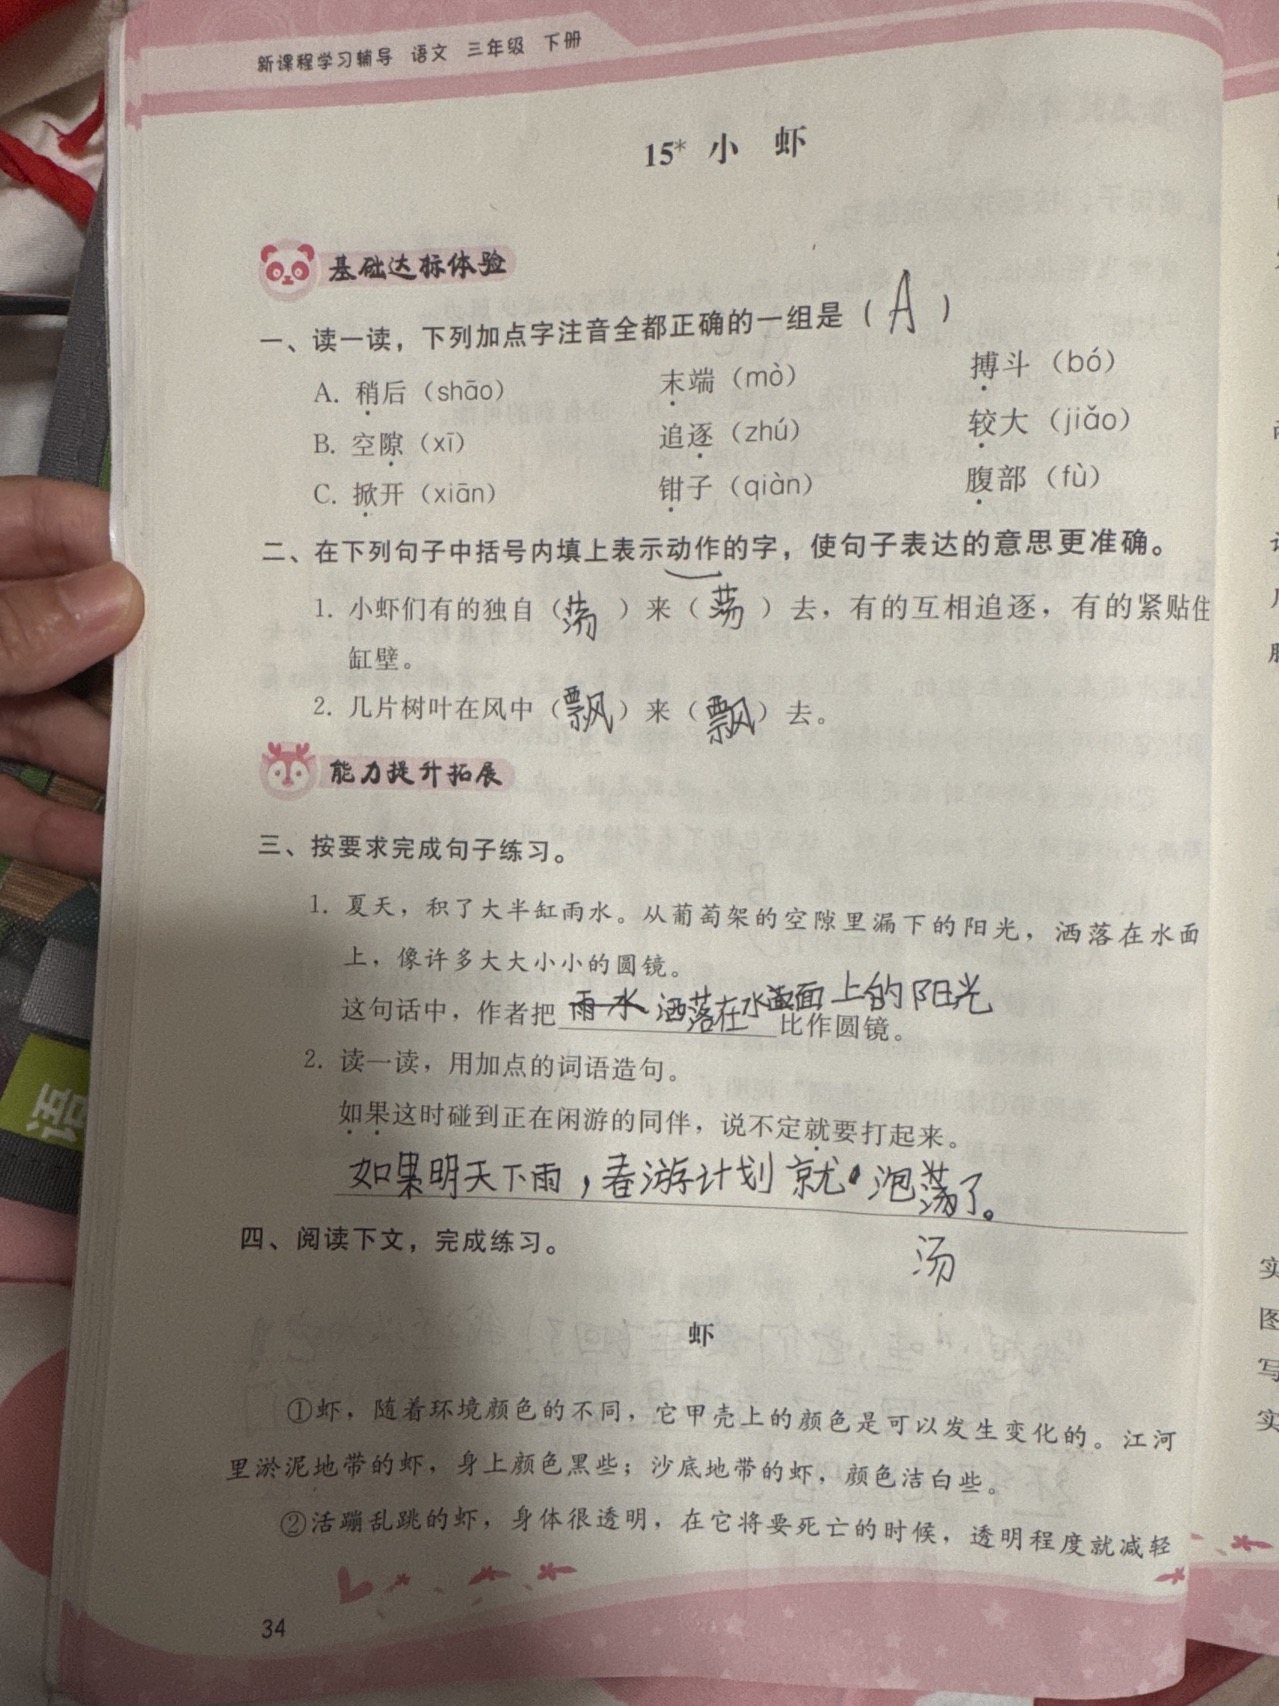 新课程学习辅导 语文 三年级 下册
15* 小 虾
基础达标体验
一、读一读，下列加点字注音全都正确的一组是（ A ）
A. 稍后（shāo） 末端（mò） 搏斗（bó）
B. 空隙（xī） 追逐（zhú） 较大（jiǎo）
C. 掀开（xiān） 钳子（qiàn） 腹部（fù）
二、在下列句子中括号内填上表示动作的字，使句子表达的意思更准确。
1. 小虾们有的独自（荡）来（荡）去，有的互相追逐，有的紧贴住
缸壁。
2. 几片树叶在风中（飘）来（飘）去。
能力提升拓展
三、按要求完成句子练习。
1. 夏天，积了大半缸雨水。从葡萄架的空隙里漏下的阳光，洒落在水面
上，像许多大大小小的圆镜。
这句话中，作者把 雨水 洒落在水面上的阳光 比作圆镜。
2. 读一读，用加点的词语造句。
如果这时碰到正在闲游的同伴，说不定就要打起来。
如果明天下雨，春游计划就泡荡了。
汤
四、阅读下文，完成练习。
虾
①虾，随着环境颜色的不同，它甲壳上的颜色是可以发生变化的。江河
里淤泥地带的虾，身上颜色黑些；沙底地带的虾，颜色洁白些。
②活蹦乱跳的虾，身体很透明，在它将要死亡的时候，透明程度就减轻
34
语
实
图
写
实